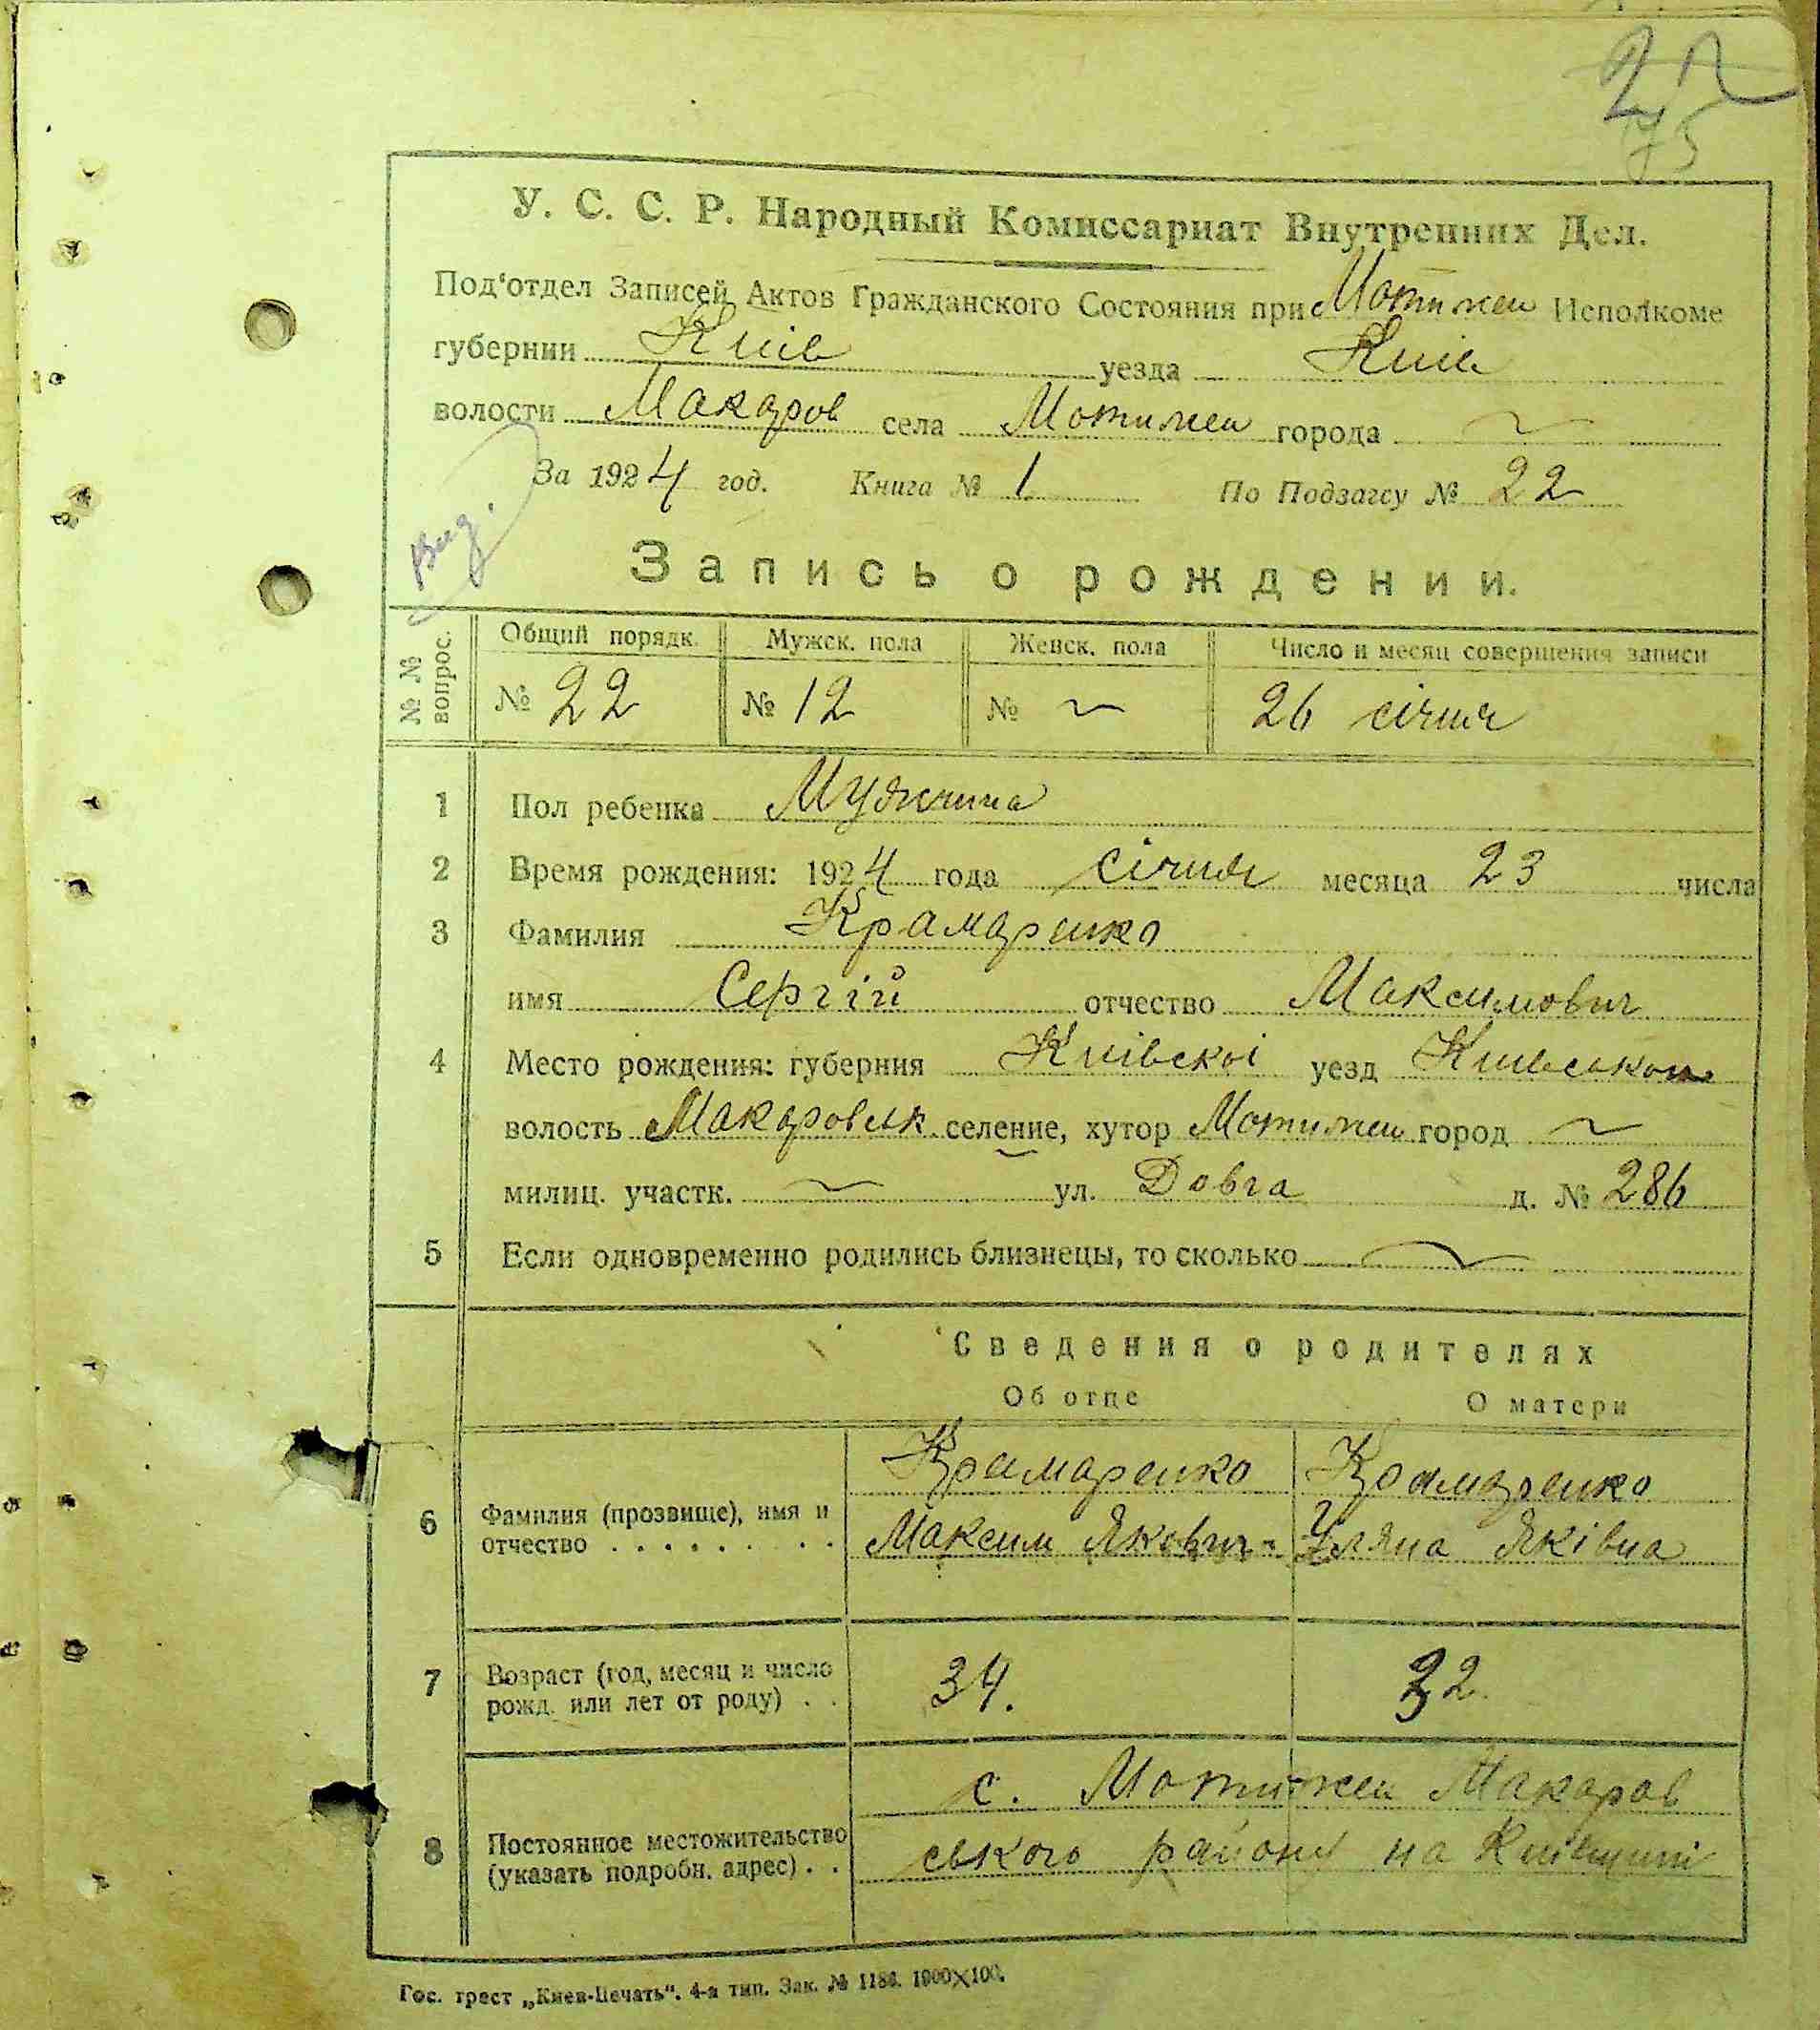 22
75
У. С. С. Р. Народный Комиссариат Внутренних Дел.
Под'отдел Записей Актов Гражданского Состояния при Мотижен Исполкоме
губернии Київ уезда Київ
волости Макаров села Мотижен города ~
За 1924 год. Книга № 1 По Подзагсу № 22
Запись о рождении.
№ № вопрос. Общий порядк. Мужск. пола Женск. пола Число и месяц совершения записи
№ 22 № 12 № ~ 26 січня
1 Пол ребенка Мужчина
2 Время рождения: 1924 года січня месяца 23 числа
3 Фамилия Крамаренко
имя Сергій отчество Максимович
4 Место рождения: губерния Київскоі уезд
волость Макаровск селение, хутор Мотижен город ~
милиц. участк. ~ ул. Довга д. № 286
5 Если одновременно родились близнецы, то сколько ~
Сведения о родителях
Об отце О матери
Крамаренко Крамаренко
6 Фамилия (прозвище), имя и
отчество . . . . . . . . . Максим Якович Уляна Яківна
7 Возраст (год, месяц и число
рожд. или лет от роду) . . 34. 32.
с. Мотижен Макаров
8 Постоянное местожительство
(указать подробн. адрес) . . ського району на Київщині
Гос. трест „Киев-Печать". 4-я тип. Зак. № 1186. 1000×100.